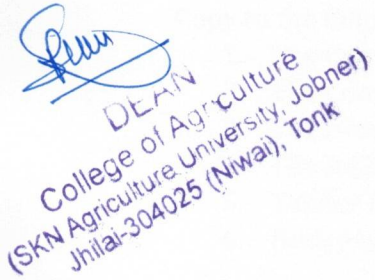 DEAN
College of Agriculture
(SKN Agriculture University, Jobner)
Jhilai-304025 (Niwai), Tonk